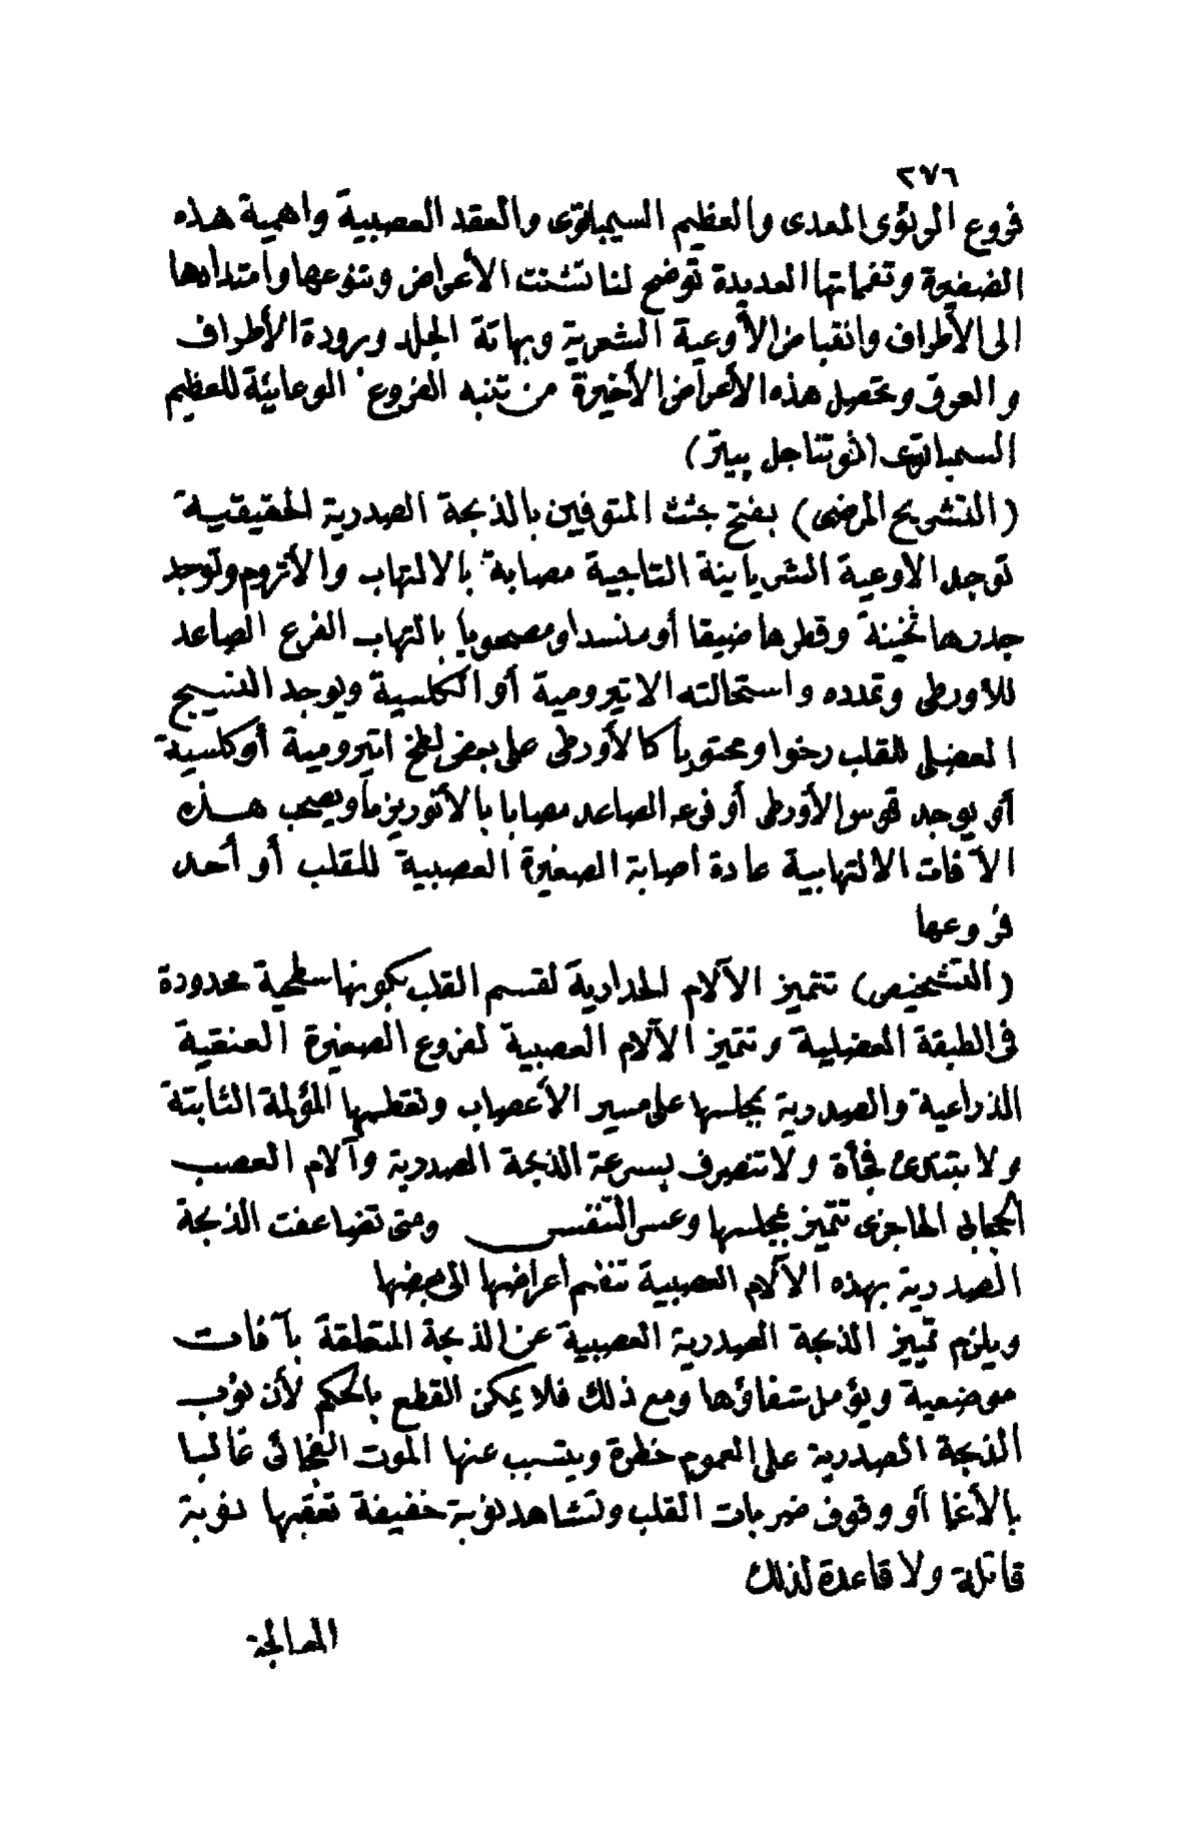 ٢٧٦
فروع الرئوى المعدى والعظيم السيمباتوى والعقد العصبية واهمية هذه
الضفيرة وتفماتها العديدة توضح لنا تشتت الأعراض وتنوعها وامتدادها
الى الأطراف وانقباض الأوعية الشعرية وبهاتة الجلد وبرودة الأطراف
والعرق وتحصل هذه الأعراض الأخيرة من تنبه الفروع الوعائية للعظيم
السمباتوى (انوتناجل بيتر)
(التشريح المرضى) بفتح جثث المتوفين بالذبحة الصدرية الحقيقية
توجد الاوعية الشريانية التاجية مصابة بالالتهاب والأتروم وتوجد
جدرها ثخينة وقطرها ضيقا أو منسدا ومصحوبا بالتهاب الفرع الصاعد
للأورطى وتمدده واستحالته الاتيرومية أو الكلسية ويوجد النسيج
العضلى للقلب رخوا ومحتويا كالأورطى على بعض لطخ اتيرومية أو كلسية
أو يوجد قوس الأورطى أو فرعه الصاعد مصابا بالأنوريزما ويصحب هذه
الآفات الالتهابية عادة اصابة الصغيرة العصبية للقلب أو أحد
فروعها
(التشخيص) تتميز الآلام الحدارية لقسم القلب بكونها سطحية محدودة
فى الطبقة العضلية وتتميز الآلام العصبية لفروع الصغيرة العنقية
الذراعية والصدرية بمجلسها على مسير الأعصاب ونقطها المؤلمة الثابتة
ولا تبتدئ فجأة ولا تنصرف بسرعة الذبحة الصدرية وآلام العصب
الحجابى الحاجزى تتميز بمجلسها وعسر التنفس ومتى تضاعفت الذبحة
الصدرية بهذه الآلام العصبية تنضم أعراضها الى بعضها
ويلزم تمييز الذبحة الصدرية العصبية عن الذبحة المتعلقة بآفات
موضعية ويؤمل شفاؤها ومع ذلك فلا يمكن القطع بالحكم لأن نوب
الذبحة الصدرية على العموم خطرة ويتسبب عنها الموت الفجائى غالبا
بالأغما أو وقوف ضربات القلب وتشاهد نوبة خفيفة تعقبها نوبة
قاتلة ولا قاعدة لذلك
المعالجة